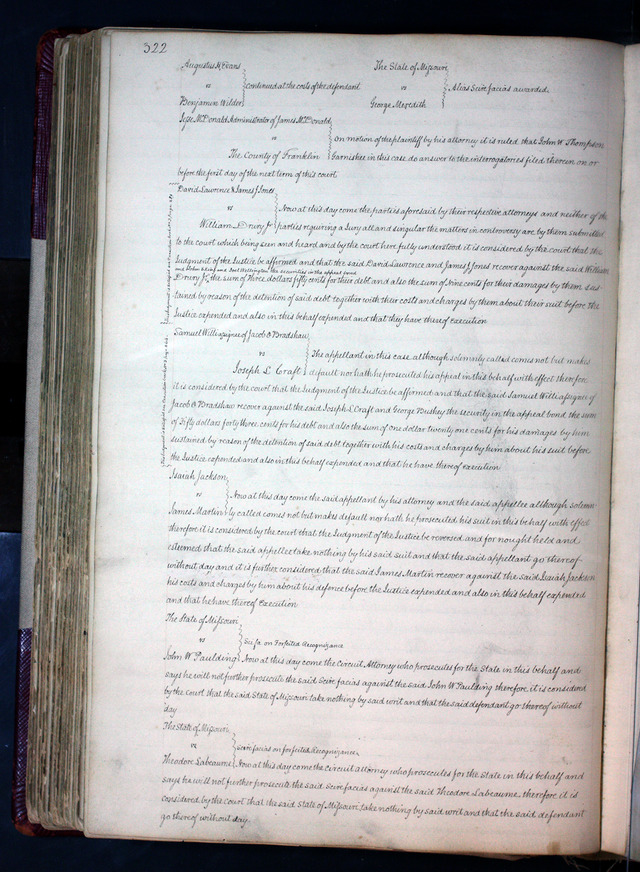 322
Augustus H Evans
vs } Continued at the costs of the defendant
Benjamin Wilder
The State of Missouri
vs } Alias Scire facias awarded
George Meredith
Jesse McDonald Administrator of James McDonald
vs } On motion of the plaintiff by his attorney it is ruled that John W Thompson
The County of Franklin } Garnishee in this case do answer to the interrogatories filed therein on or
before the first day of the next term of this court
David Lawrence & James J Jones
vs } Now at this day come the parties aforesaid by their respective attorneys and neither of the
William Drury Jr } parties requiring a Jury all and singular the matters in controversy are by them submitted
to the court which being seen and heard and by the court here fully understood it is considered by the court that the
Judgment of the Justice be affirmed and that the said David Lawrence and James J Jones recover against the said William
and the securities in the appeal bond
Drury Jr the sum of Three dollars fifty cents for their debt and also the sum of nine cents for their damages by them sus
tained by reason of the detention of said debt together with their costs and charges by them about their suit before the
Justice expended and also in this behalf expended and that they have thereof execution
Samuel Will assignee of Jacob O Bradshaw
vs } The appellant in this case although solemnly called comes not but makes
Joseph L Craft } default nor hath he prosecuted his appeal in this behalf with effect therefore
it is considered by the court that the Judgment of the Justice be affirmed and that the said Samuel Will assignee of
Jacob O Bradshaw recover against the said Joseph L Craft and George Bushey the security in the appeal bond the sum
of Fifty dollars forty three cents for his debt and also the sum of one dollar twenty one cents for his damages by him
sustained by reason of the detention of said debt together with his costs and charges by him about his suit before
the Justice expended and also in this behalf expended and that he have thereof execution
Isaiah Jackson
vs } Now at this day come the said appellant by his attorney and the said appellee although solemn
James Martin } ly called comes not but makes default nor hath he prosecuted his suit in this behalf with effect
therefore it is considered by the court that the Judgment of the Justice be reversed and for nought held and
esteemed that the said appellee take nothing by his said suit and that the said appellant go thereof
without day and it is further considered that the said James Martin recover against the said Isaiah Jackson
his costs and charges by him about his defence before the Justice expended and also in this behalf expended
and that he have thereof execution
The State of Missouri
vs } Sci fa on Forfeited Recognizance
John W Paulding } Now at this day come the Circuit Attorney who prosecutes for the State in this behalf and
says he will not further prosecute the said Scire facias against the said John W Paulding therefore it is considered
by the Court that the said State of Missouri take nothing by said writ and that the said defendant go thereof without
day
The State of Missouri
vs } Scire facias on forfeited Recognizance
Theodore Labeaume } Now at this day come the Circuit attorney who prosecutes for the State in this behalf and
says he will not further prosecute the said Scire facias against the said Theodore Labeaume therefore it is
considered by the Court that the said State of Missouri take nothing by said writ and that the said defendant
go thereof without day